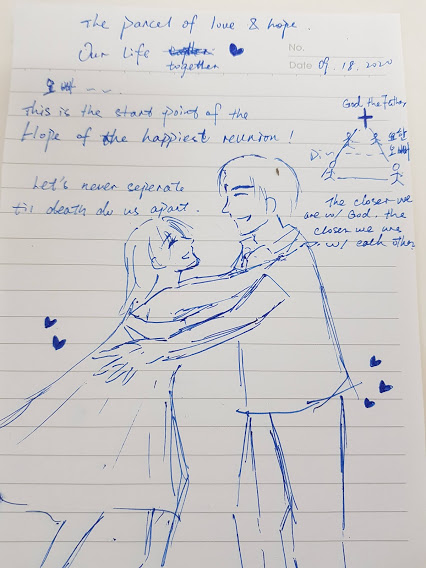 The parcel of love & hope.
Our Life
together
No.
Date 09.18.2020
오빠 ~~.
This is the start point of the
Hope of the happiest reunion!
Let's never seperate
til death do us apart.
God the Father
Di.~
오빠
The closer we
are w/ God, the
closer we are
w/ each other.